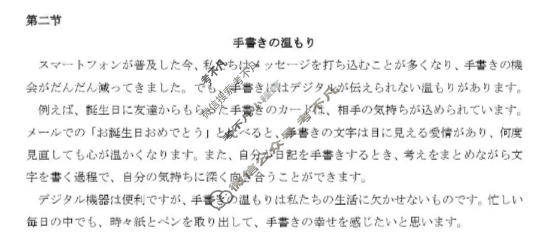 第二节
手書きの温もり
スマートフォンが普及した今、私たちはメッセージを打ち込むことが多くなり、手書きの機
会がだんだん減ってきました。でも、手書きにはデジタルが伝えられない温もりがあります。
例えば、誕生日に友達からもらった手書きのカードは、相手の気持ちが込められています。
メールでの「お誕生日おめでとう」と比べると、手書きの文字は目に見える愛情があり、何度
見直しても心が温かくなります。また、自分が日記を手書きするとき、考えをまとめながら文
字を書く過程で、自分の気持ちに深く向き合うことができます。
デジタル機器は便利ですが、手書きの温もりは私たちの生活に欠かせないものです。忙しい
毎日の中でも、時々紙とペンを取り出して、手書きの幸せを感じたいと思います。